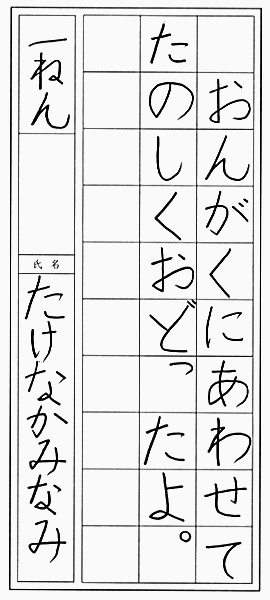 おんがくにあわせて
たのしくおどったよ。
一ねん
氏名
たけなかみなみ